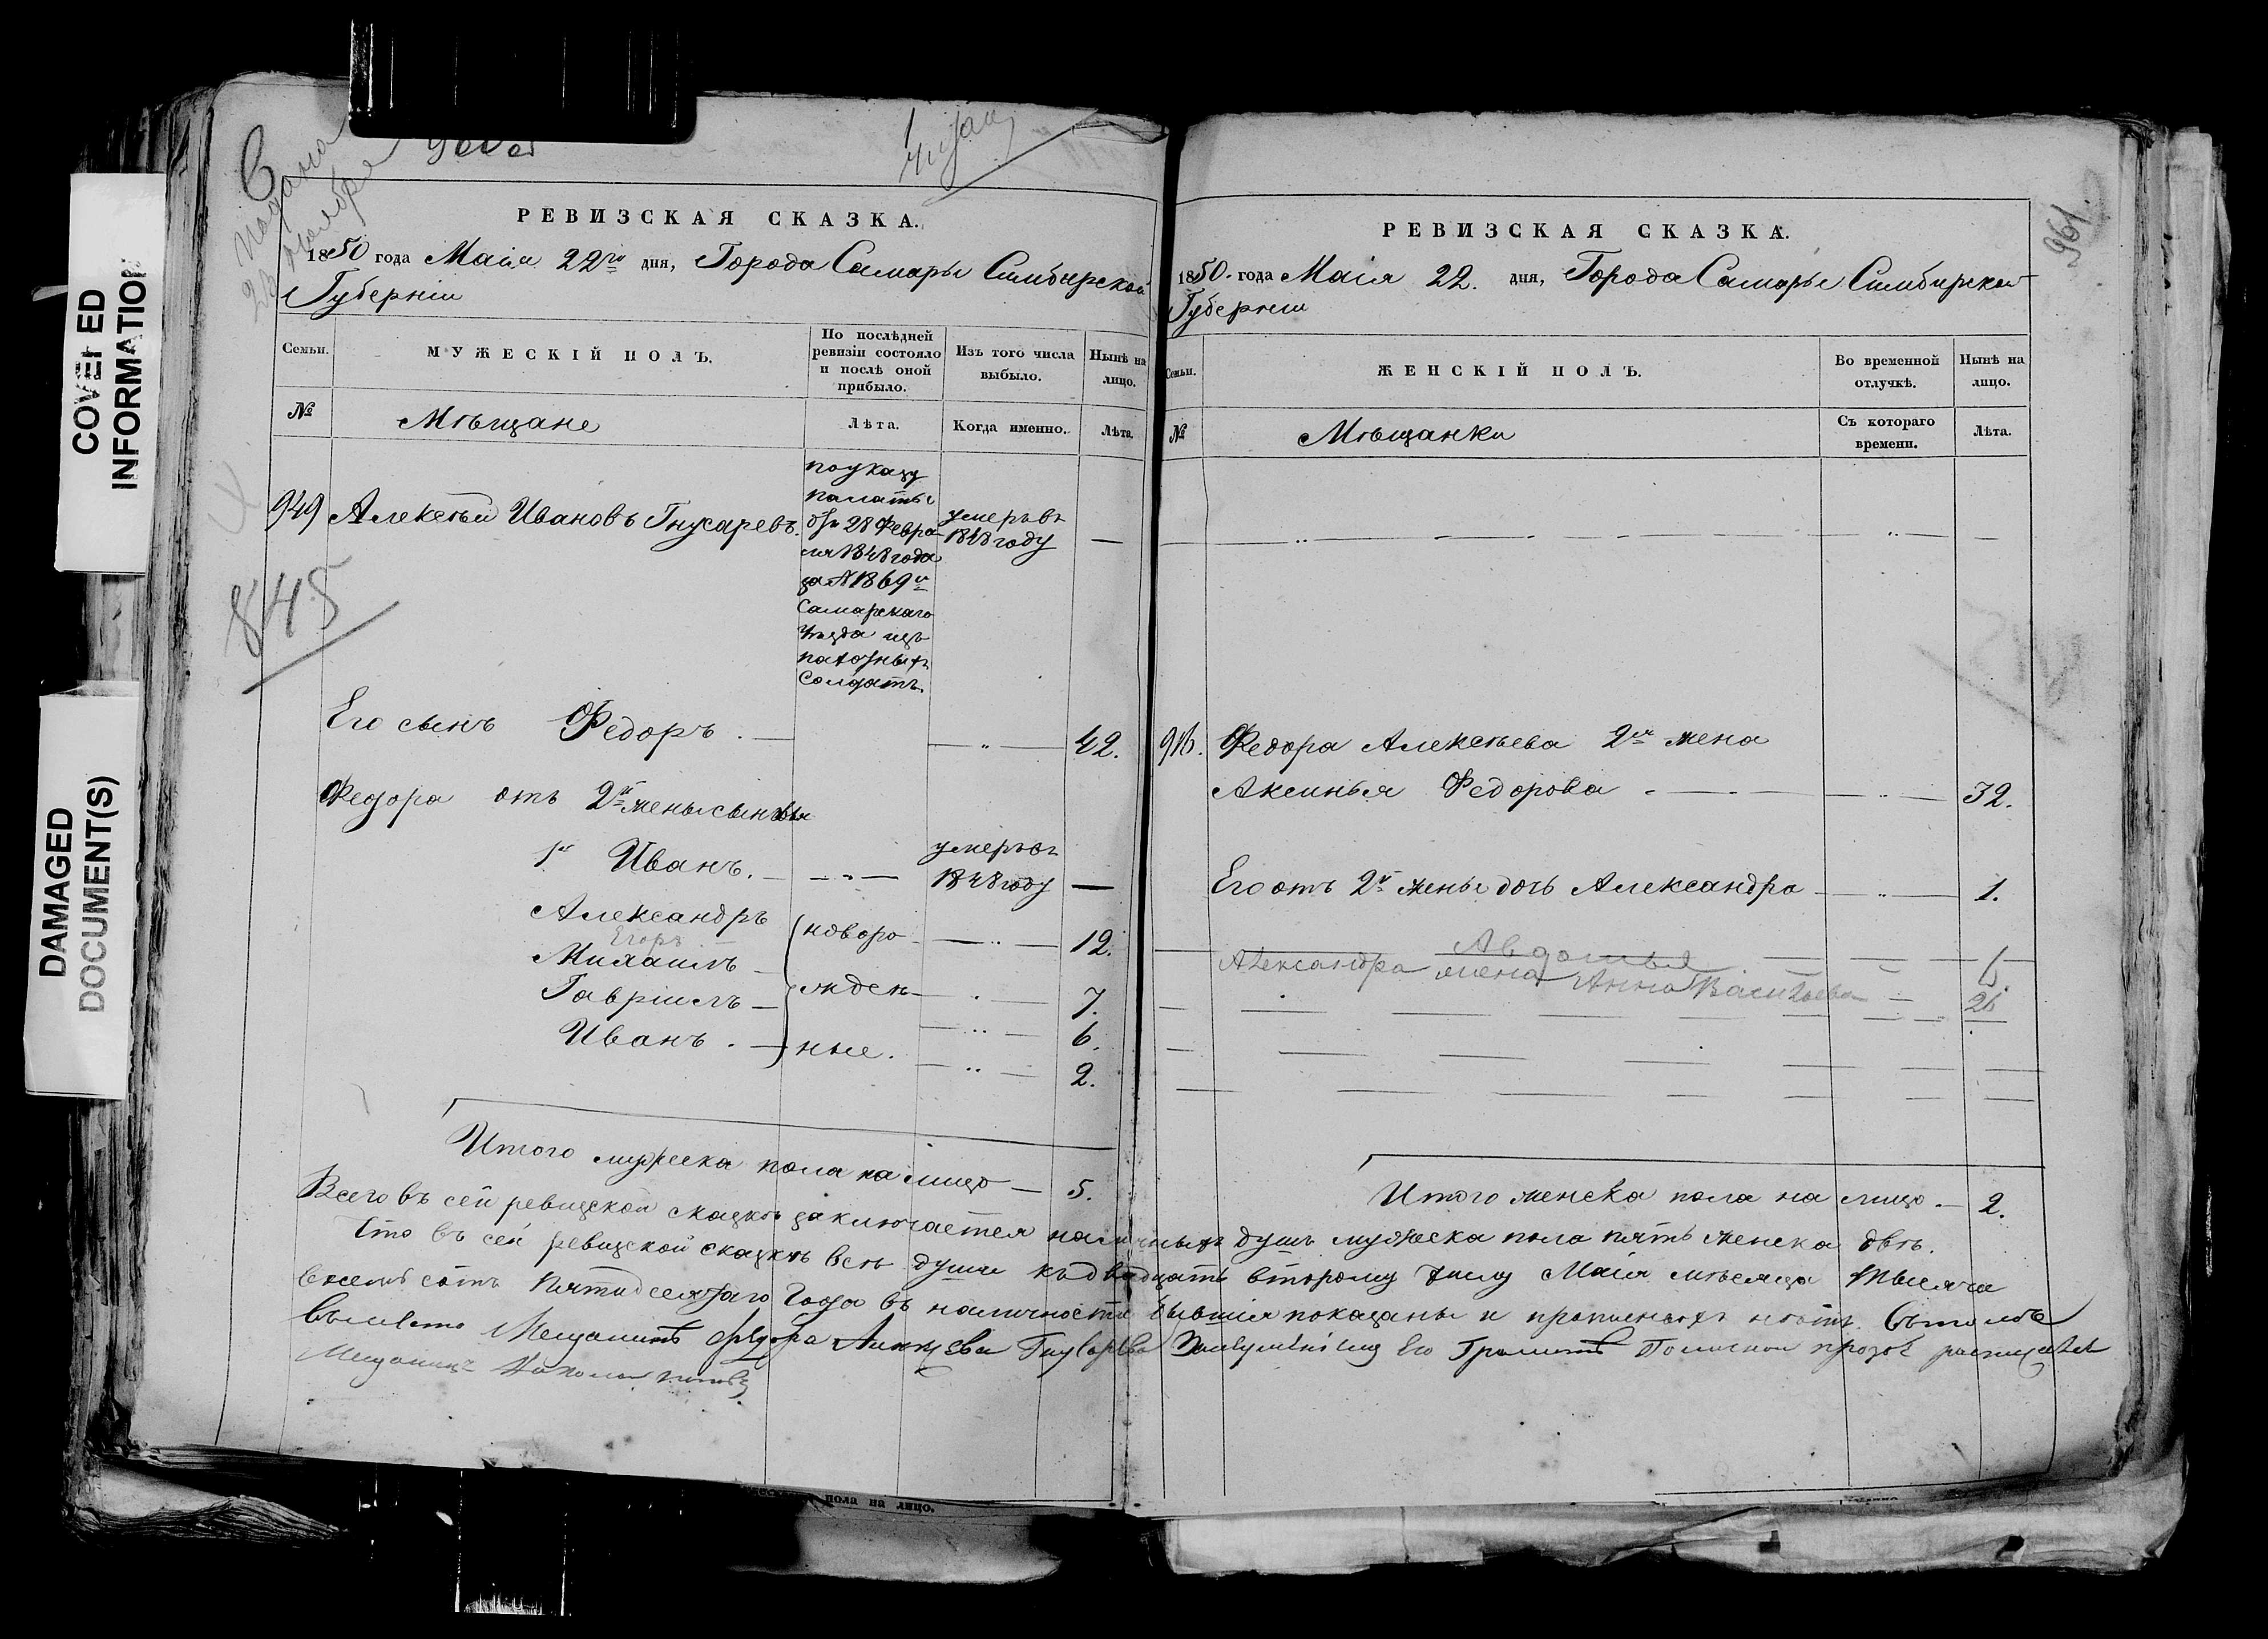 COVERED
INFORMATION
DAMAGED
DOCUMENT(S)
РЕВИЗСКАЯ СКАЗКА.
1850 года Маія 22го дня, Города Самары Симбирской
Губерніи
Семьи.
МУЖЕСКІЙ ПОЛЪ.
По послѣдней
ревизіи состояло
и послѣ оной
прибыло.
Изъ того числа
выбыло.
Нынѣ на
лицо.
№
Мѣщане
Лѣта.
Когда именно.
Лѣта.
949 Алексѣй Ивановъ Гнусаревъ.
по указу
палаты
отъ 28 Февра
ля 1848 года
за № 1869м
Самарскаго
уѣзда изъ
пахотныхъ
Солдатъ.
умеръ въ
1848 году —
845
Его сынъ Федоръ. — 42.
Федора отъ 2й жены сыновья
1й Иванъ. —
умеръ въ
1848 году —
Александръ 12.
Егоръ
Михаилъ 7.
Гавріилъ — 6.
Иванъ. — 2.
новоро
жден
ные.
Итого мужеска пола на лицо — 5.
РЕВИЗСКАЯ СКАЗКА.
961.
1850. года Маія 22. дня, Города Самары Симбирской
Губерніи
Семьи.
ЖЕНСКІЙ ПОЛЪ.
Во временной
отлучкѣ.
Нынѣ на
лицо.
№
Мѣщанки
Съ котораго
времени.
Лѣта.
Федора Алексѣева 2я жена
Аксинья Федорова 32.
Его отъ 2й жены дочь Александра 1.
Авдотья
Александра жена Анна Васильева
Итого женска пола на лицо — 2.
Всего въ сей ревизской сказкѣ заключается наличныхъ душъ мужеска пола пять женска двѣ.
Что въ сей ревизской сказкѣ всѣ души къ двадцать второму числу Маія мѣсяца тысяча
восемь сотъ пятидесятаго года въ наличности бывшія показаны и прописныхъ нѣтъ. Въ томъ
Мещанинъ
пола на лицо.